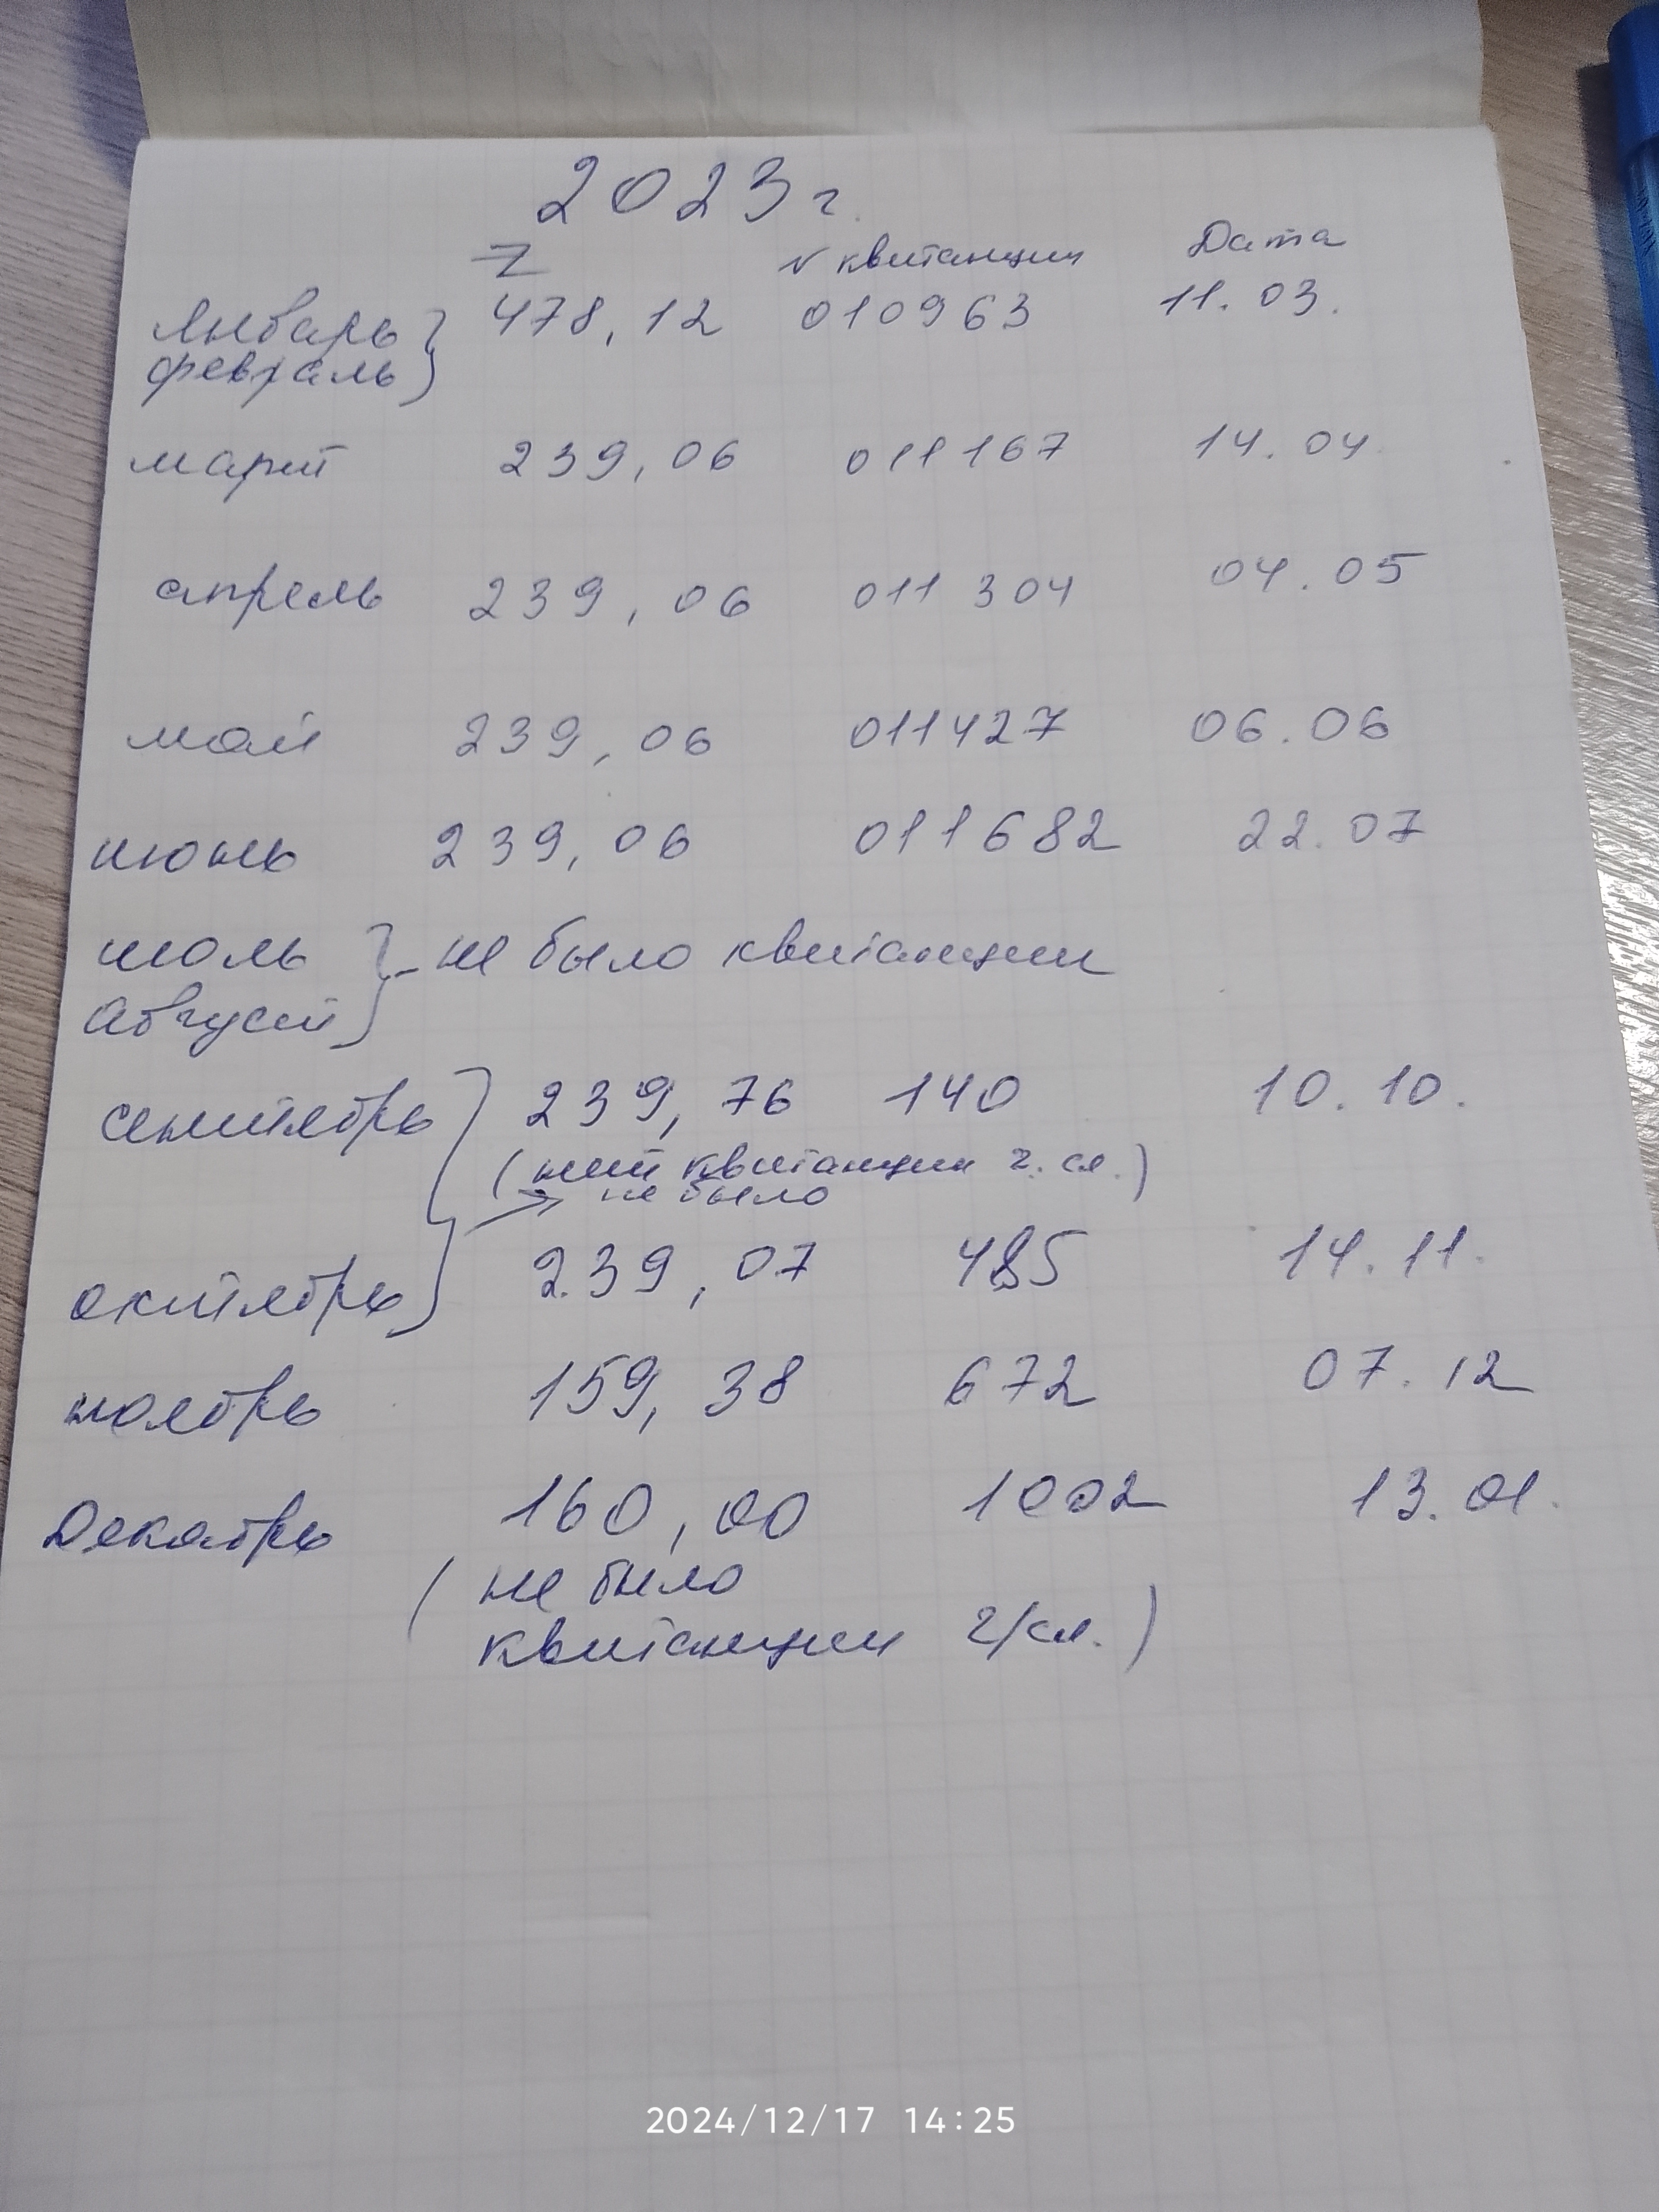 2023 г.
N квитанции Дата
Январь 478,12 010963 11.03.
февраль
март 239,06 011167 14.04
апрель 239,06 011304 04.05
май 239,06 011427 06.06
июнь 239,06 011682 22.07
июль - не было квитанции
Август
сентябрь 239,76 140 10.10.
(нет квитанции г. сл.)
не было
октябрь 239,07 485 14.11.
ноябрь 159,38 672 07.12
Декабрь 160,00 1002 13.01.
(не было
квитанции г/сл.)
2024/12/17 14:25